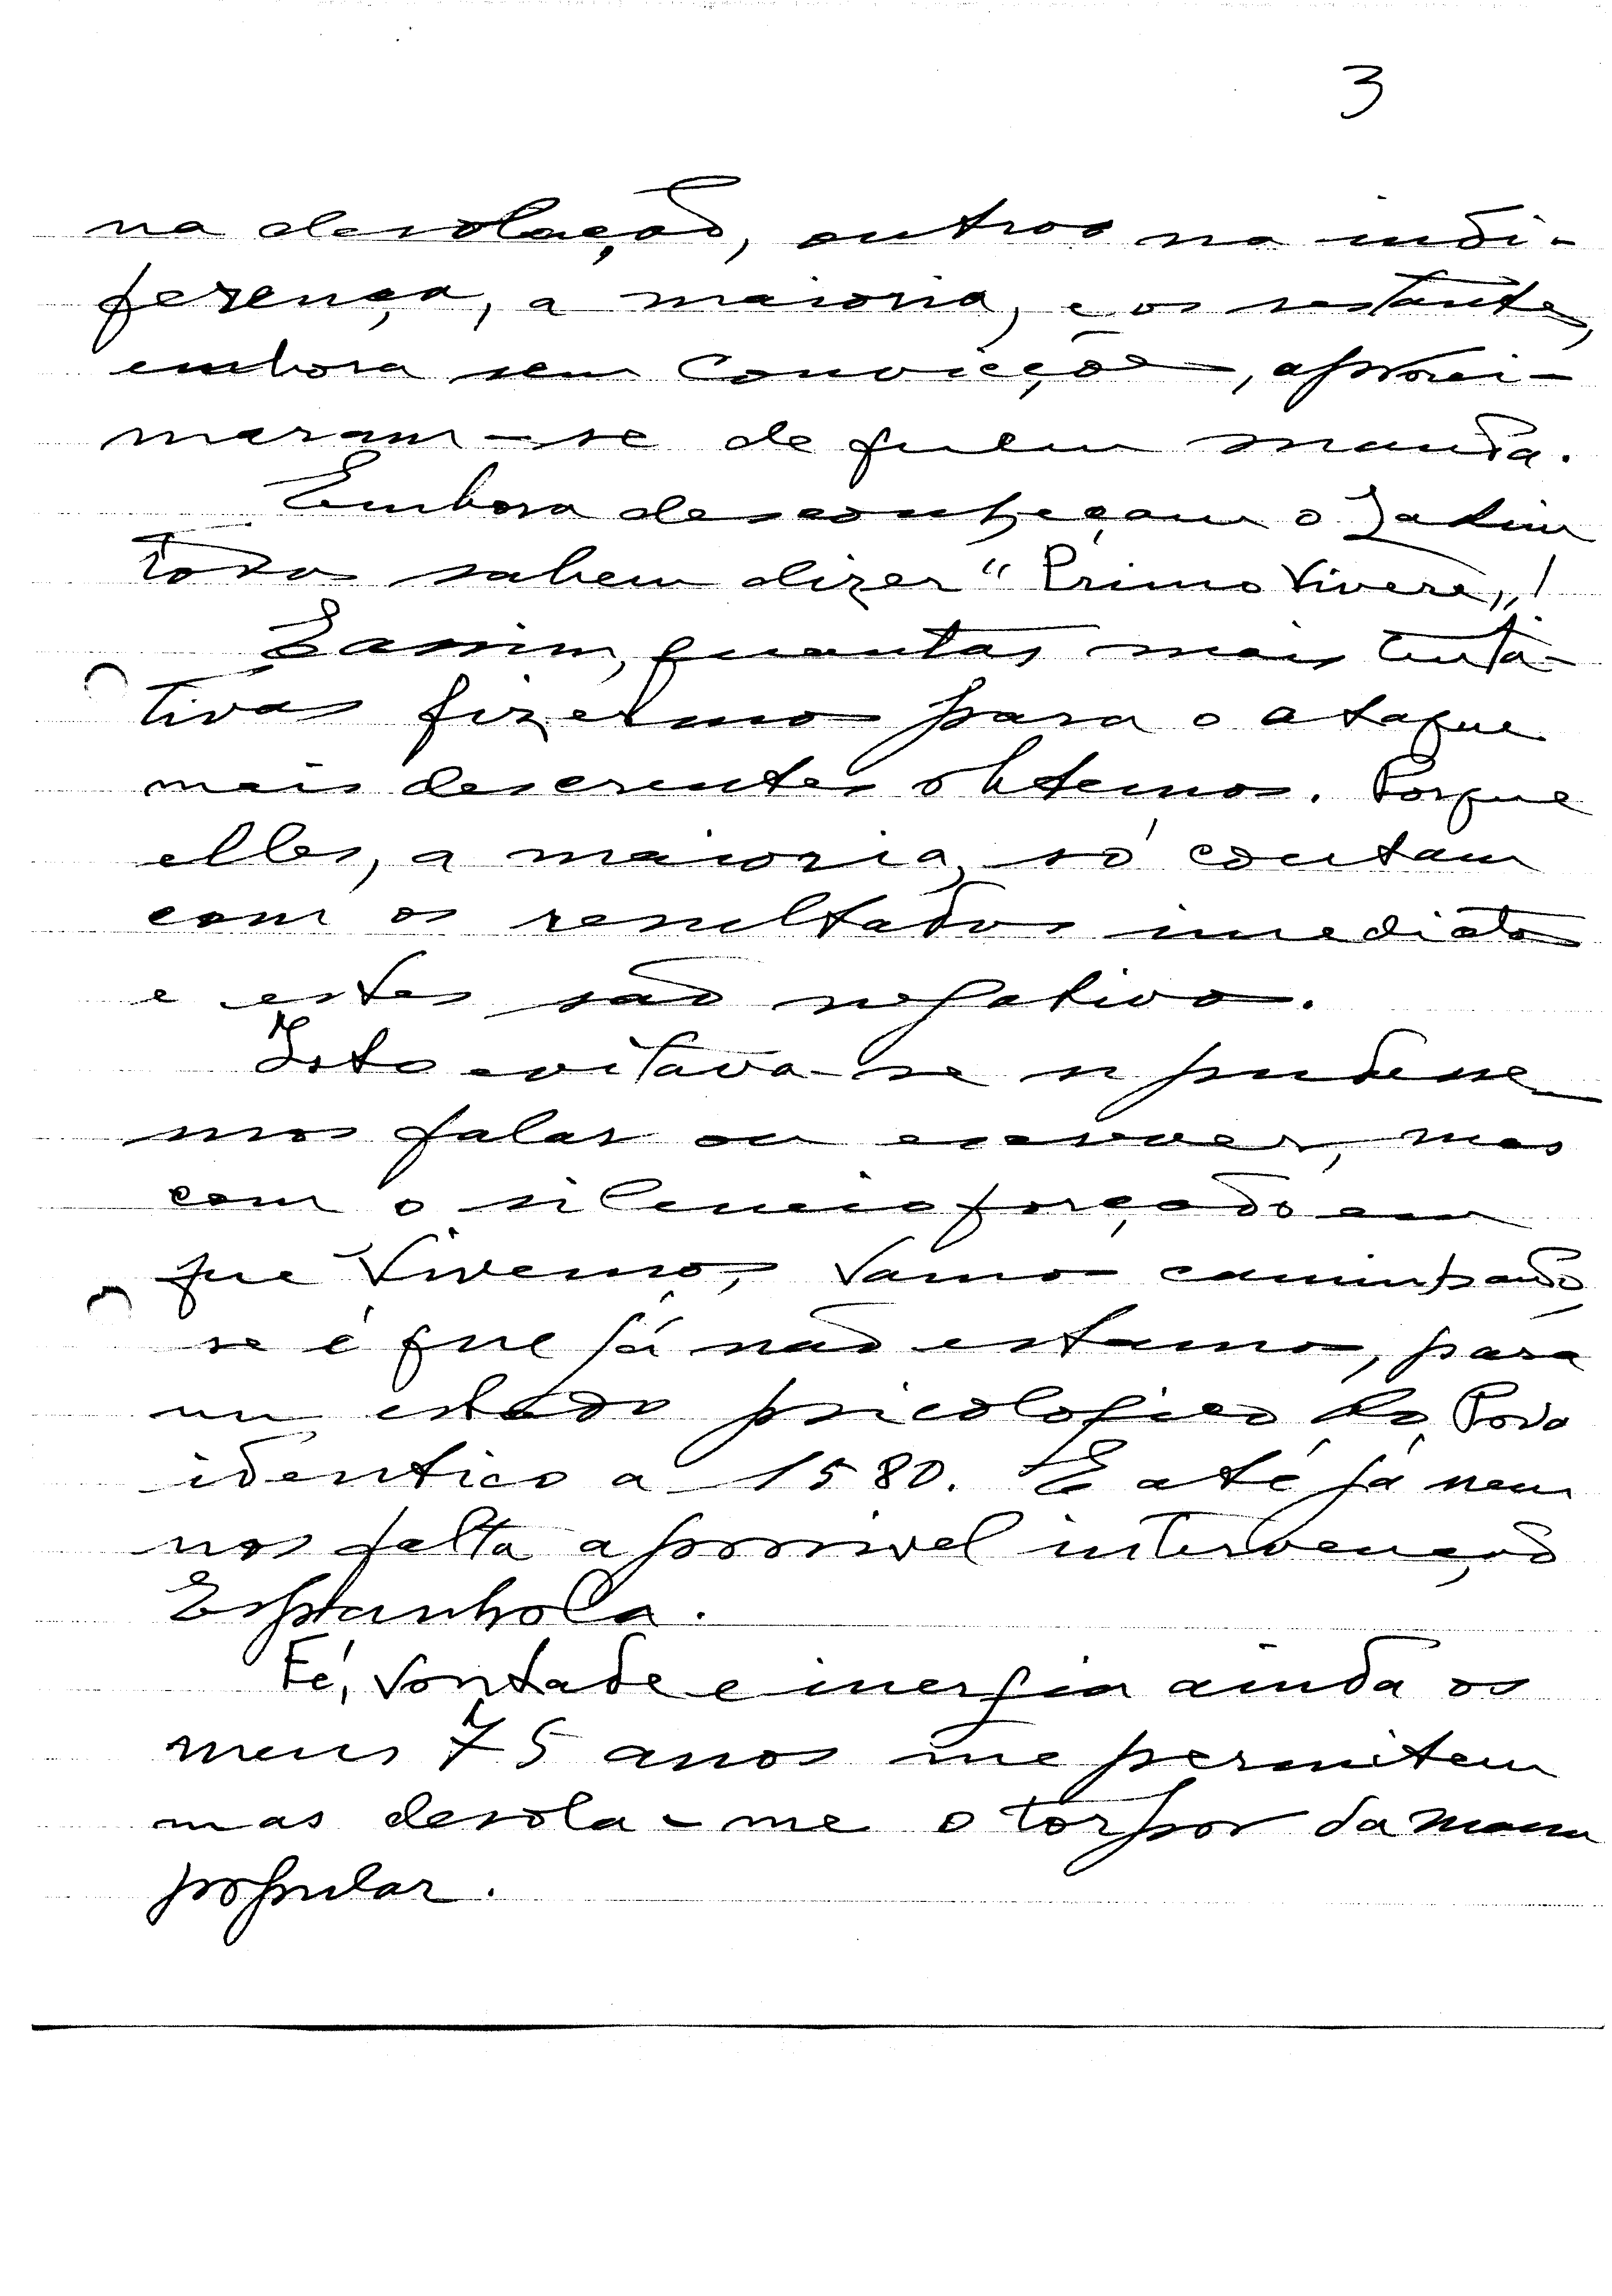 3
na desolação, outros na indi-
ferença, a maioria, e os restantes,
embora sem convicções, aproxi-
maram-se de quem manda.
Embora desconheçam o Latim
todos sabem dizer "Primo Vivere„!
E assim, quantas mais tenta-
tivas fizermos para o ataque
mais descrentes obtemos. Porque
elles, a maioria, só contam
com os resultados imediatos
e estes são negativos.
Isto evitava-se se pudesse
mos falar ou escrever, mas
com o silencio forçado em
que Vivemos, vamos caminhando
se é que já não estamos, para
um estado psicologico do Povo
identico a 1580. E até já nem
nos falta a possivel intervenção
Espanhola.
Fé, vontade e inergia ainda os
meus 75 anos me permitem
mas desola-me o torpor da massa
popular.